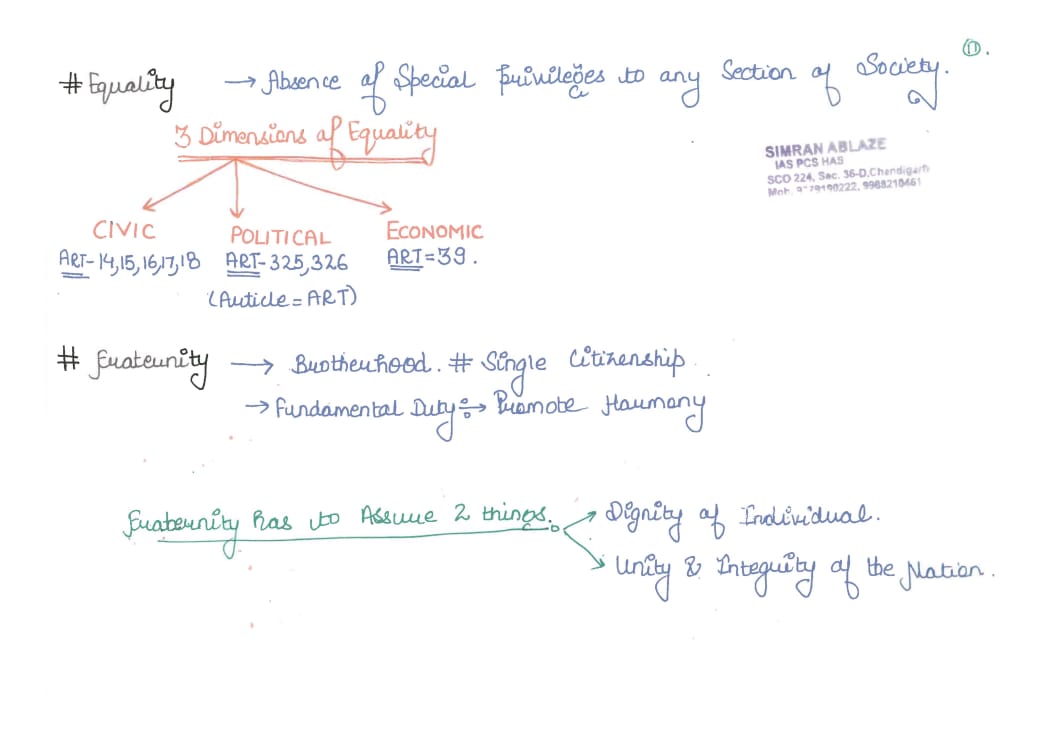 ⑪.
# Equality → Absence of Special Privileges to any Section of Society.
3 Dimensions of Equality
SIMRAN ABLAZE
IAS PCS HAS
SCO 224, Sec. 36-D, Chandigarh
Mob. 90222, 9988210461
CIVIC POLITICAL ECONOMIC
ART-14,15,16,17,18 ART-325,326 ART=39.
(Article = ART)
# fraternity → Brotherhood. # Single Citizenship
→ Fundamental Duty ÷→ Promote Harmony
fraternity has to Assure 2 things. → Dignity of Individual.
→ Unity & Integrity of the Nation.